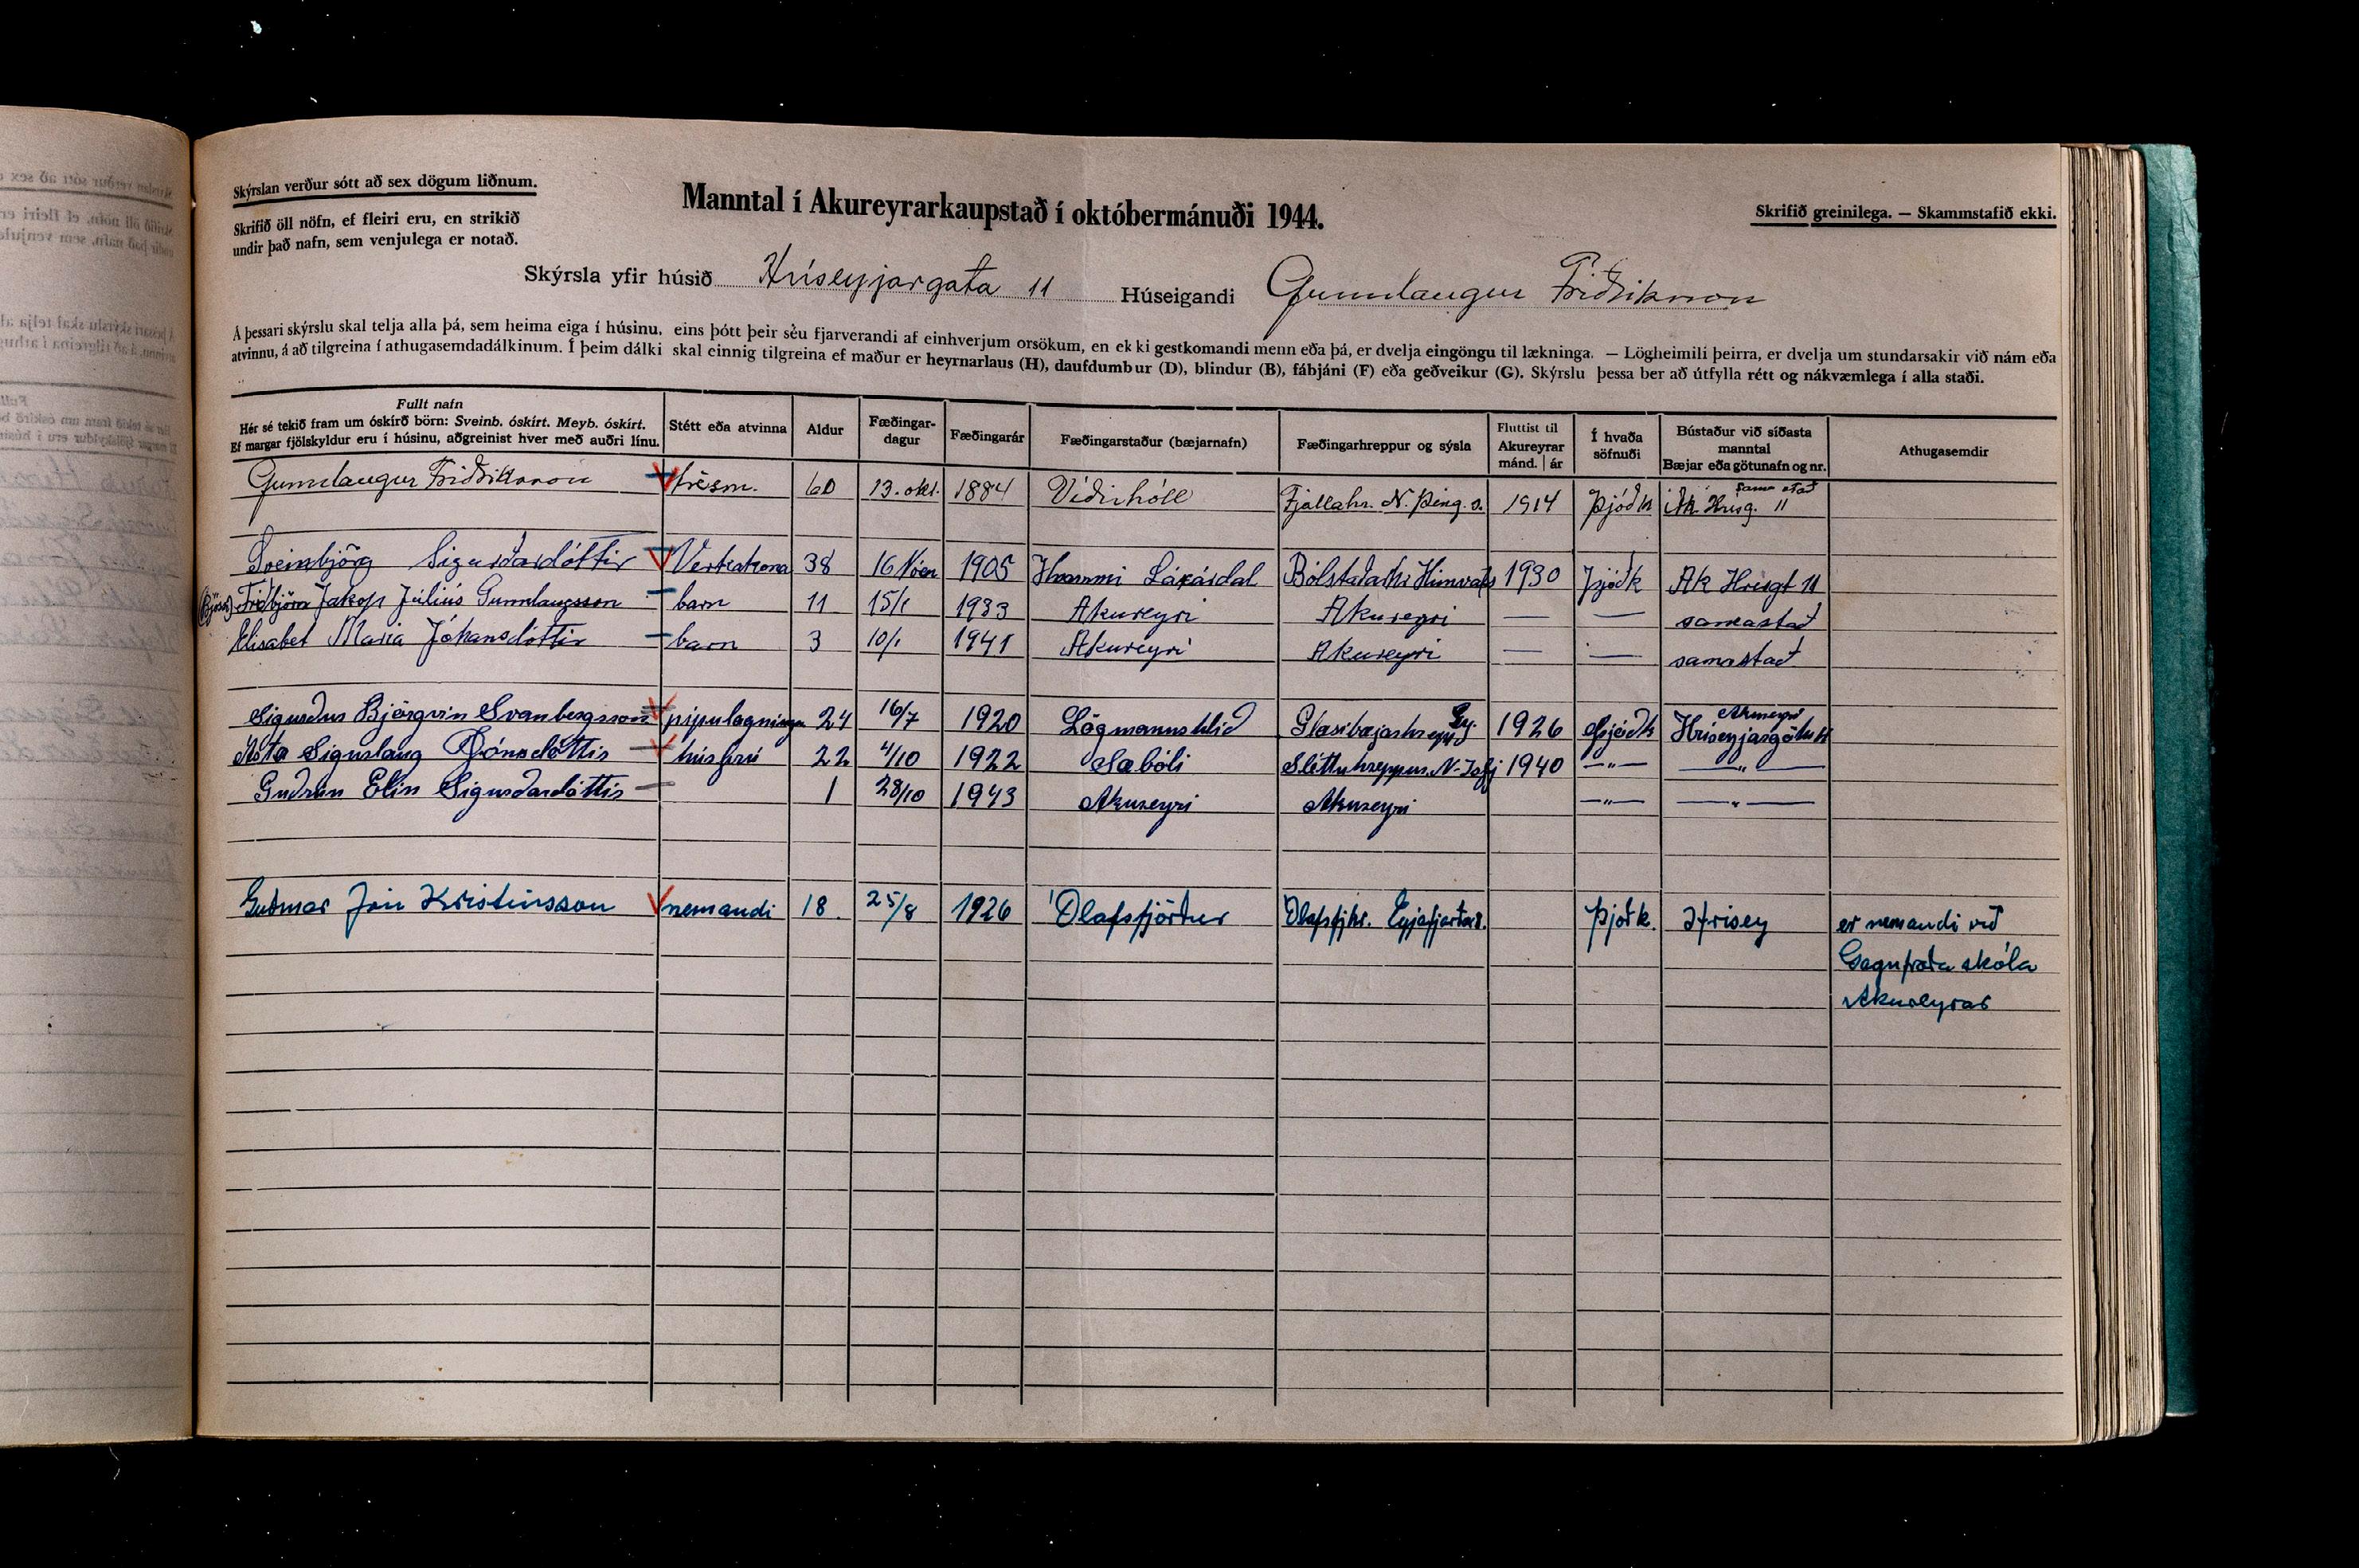 Skýrslan verður sótt að sex dögum liðnum.
Skrifið öll nöfn, ef fleiri eru, en strikið
undir það nafn, sem venjulega er notað.
Manntal í Akureyrarkaupstað í októbermánuði 1944.
Skrifið greinilega. — Skammstafið ekki.
Skýrsla yfir húsið Hríseyjargata 11 Húseigandi Gunnlaugur Friðriksson
Á þessari skýrslu skal telja alla þá, sem heima eiga í húsinu, eins þótt þeir séu fjarverandi af einhverjum orsökum, en ekki gestkomandi menn eða þá, er dvelja eingöngu til lækninga. — Lögheimili þeirra, er dvelja um stundarsakir við nám eða
atvinnu, á að tilgreina í athugasemdadálkinum. Í þeim dálki skal einnig tilgreina ef maður er heyrnarlaus (H), daufdumbur (D), blindur (B), fábjáni (F) eða geðveikur (G). Skýrslu þessa ber að útfylla rétt og nákvæmlega í alla staði.
Fullt nafn
Hér sé tekið fram um óskírð börn: Sveinb. óskírt. Meyb. óskírt.
Ef margar fjölskyldur eru í húsinu, aðgreinist hver með auðri línu.
Stétt eða atvinna
Aldur
Fæðingar-
dagur
Fæðingarár
Fæðingarstaður (bæjarnafn)
Fæðingarhreppur og sýsla
Fluttist til
Akureyrar
mánd. | ár
Í hvaða
söfnuði
Bústaður við síðasta
manntal
Bæjar eða götunafn og nr.
Athugasemdir
Gunnlaugur Friðriksson trésm. 60 13. okt. 1884 Víðirhóll Fjallahr. N. Þing. s. 1914 Þjóðk Ak. Hrísg. 11 sama stað
Sveinbjörg Sigurðardóttir Verkakona 38 16 Nóv 1905 Hvammi Laxárdal Bólstaðarhr Húnvats 1930 Þjóðk Ak Hrísgt 11
(Bjössi) Friðbjörn Jakop Júlíus Gunnlaugsson barn 11 15/1 1933 Akureyri Akureyri — — samastað
Elisabet Maria Jóhansdóttir barn 3 10/1 1941 Akureyri Akureyri — — samastað
Sigurður Björgvin Svanbergsson pípulagningm 24 16/7 1920 Lögmannshlíð Glæsibæjarhreppi Ey. 1926 Þjóðk Akureyri Hríseyjargötu 11
Ásta Sigurlaug Jónsdóttir húsfrú 22 4/10 1922 Sæbóli Sléttuhreppur N-Ísfj 1940 —"— —"—
Guðrún Elín Sigurðardóttir 1 28/10 1943 Akureyri Akureyri —"— —"—
Guðmar Jón Kristinsson nemandi 18. 25/8 1926 Ólafsfjörður Ólafsfjhr. Eyjafjarðars. Þjóðk. Hrísey er nemandi við
Gagnfræða skóla
Akureyrar